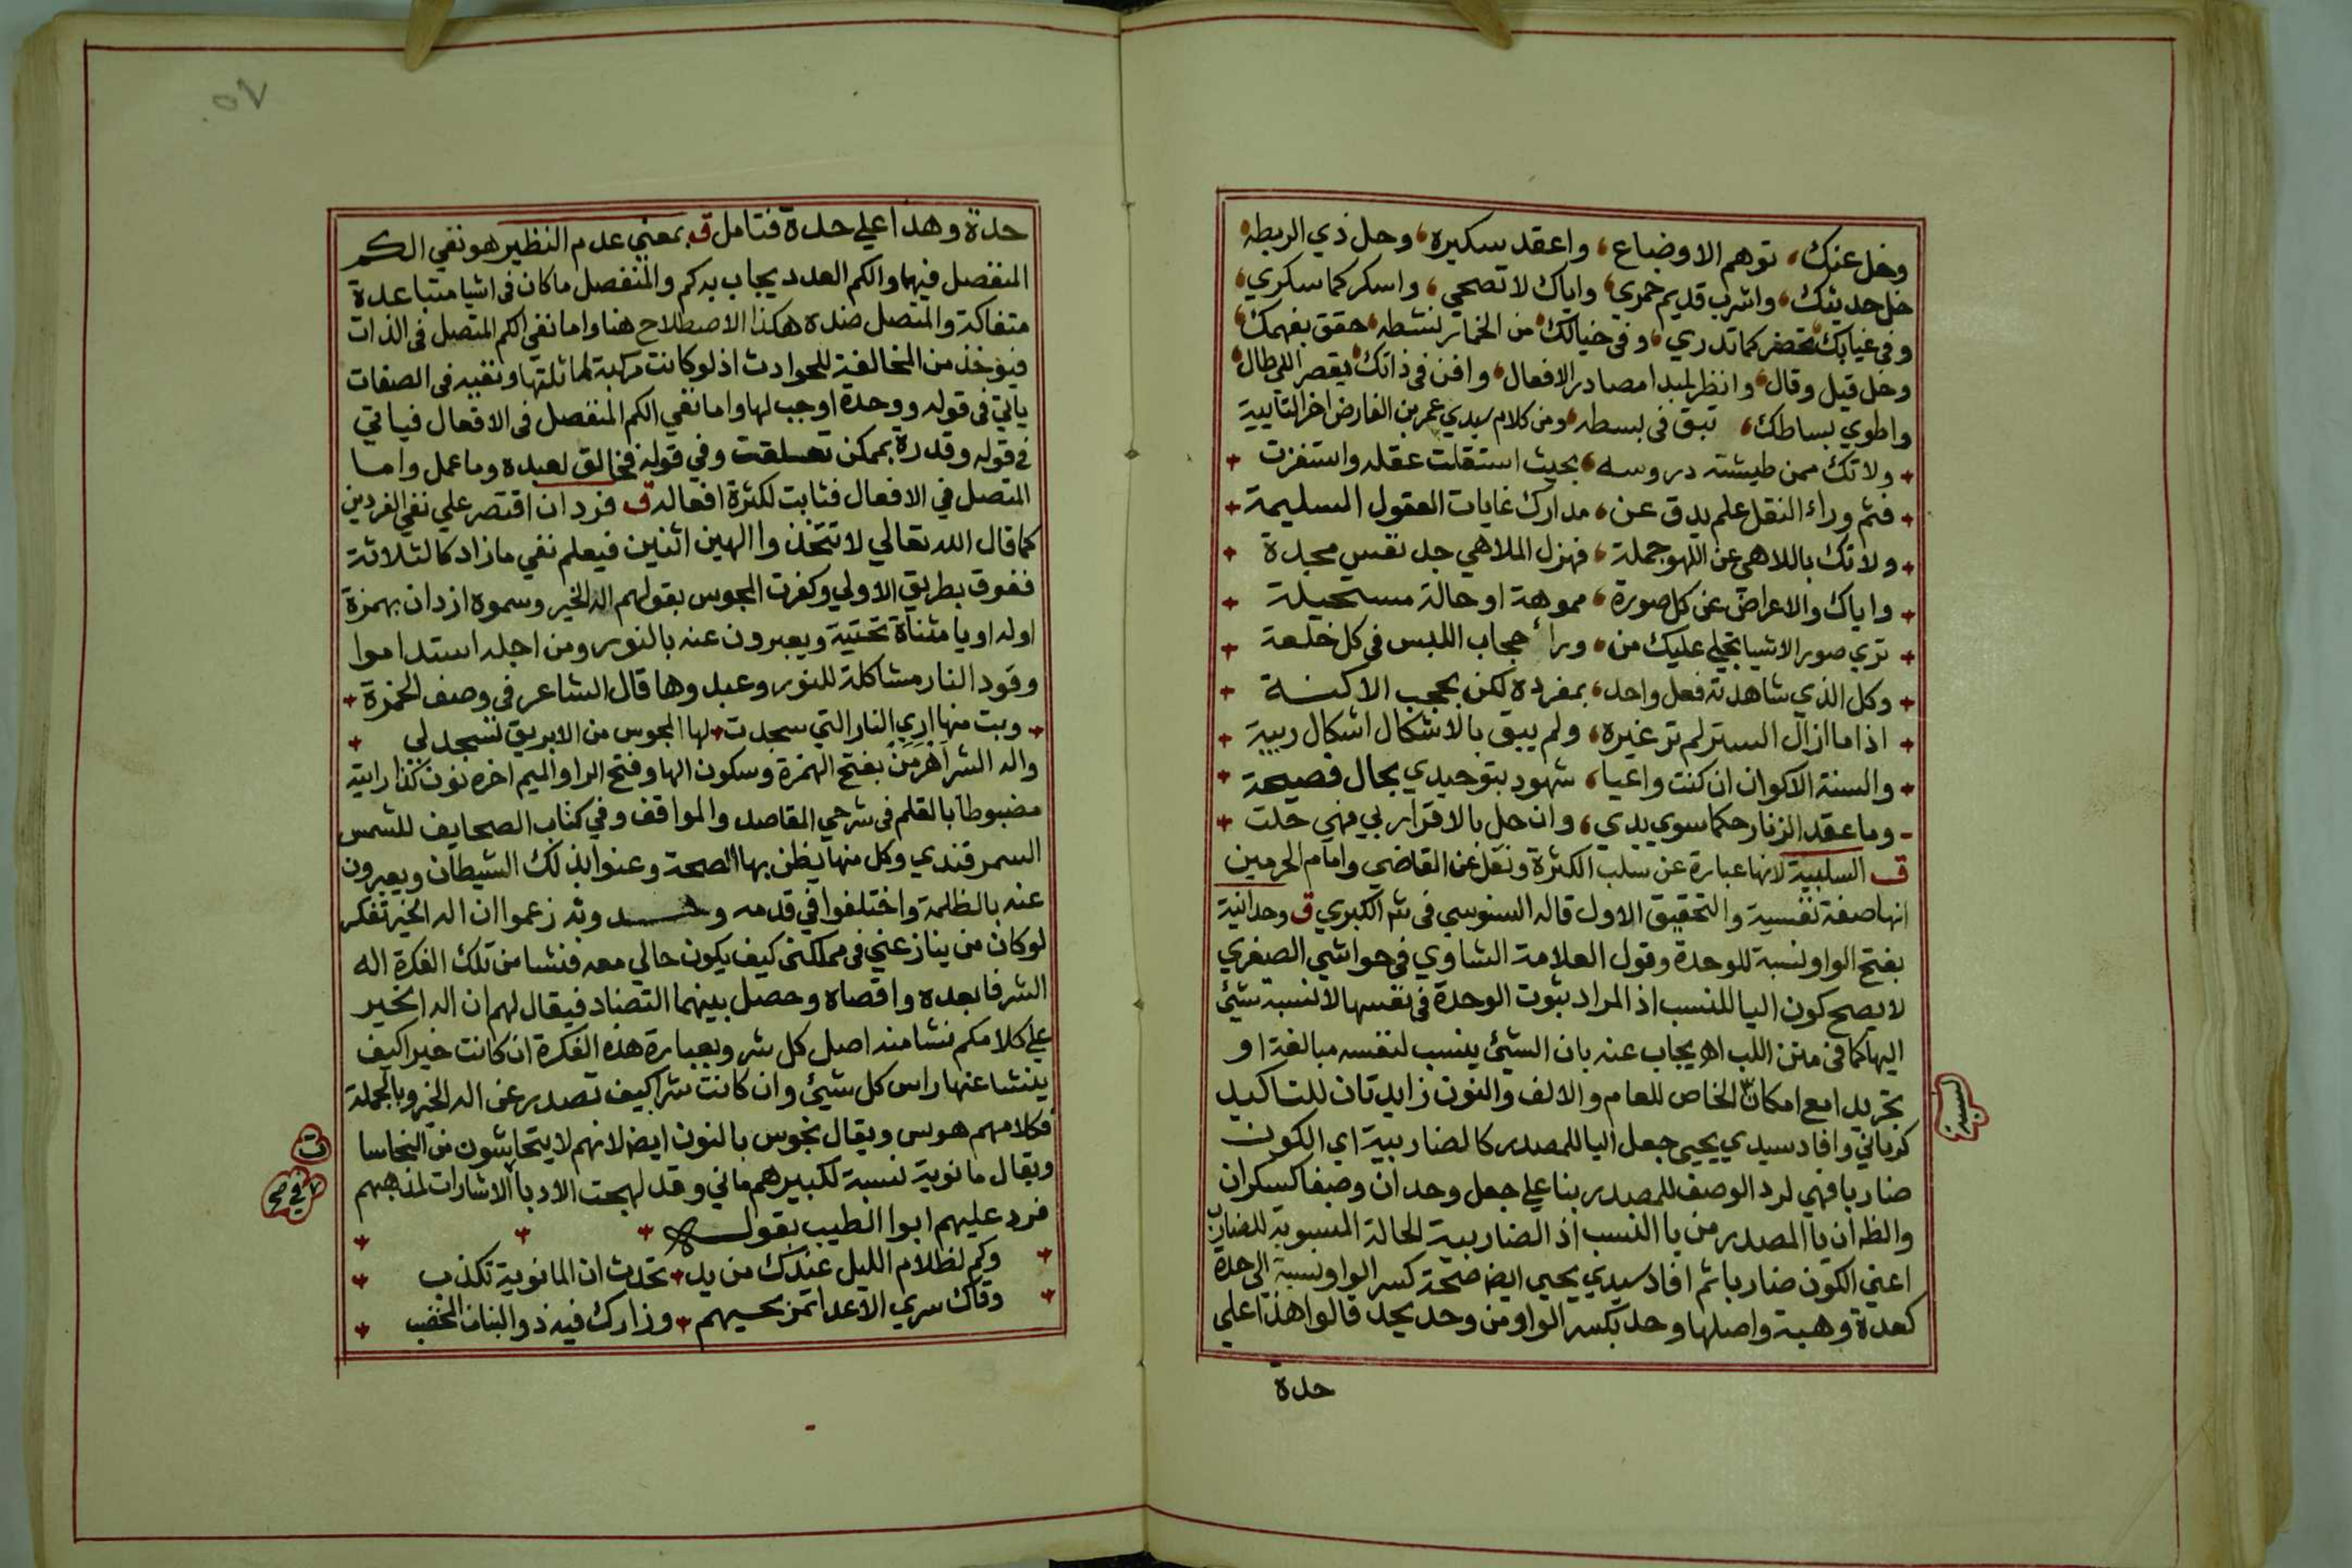 وخل عنك، توهم الاوضاع، واعقد سكيره، وحل ذي الربطه
خل حديثك، واشرب قديم خمري، واياك لا تصحي، واسكر كما سكري،
وفي غيابك تحضر كما تدري، وفي خيالك من الخمار نشطه، حقق بفهمك
وخل قيل وقال، وانظر لمبدا مصادر الافعال، وافن في ذاتك يقصر اللي طال
واطوي بساطك، تبق في بسطه، ومن كلام سيدي عمر بن الفارض اخر التاييه
ولا تك ممن طيشته دروسه، بحيث استقلت عقله واستفزت
فثم وراء النقل علم يدق عن، مدارك غايات العقول السليمة
ولا تك باللاهي عن اللهو جملة، فهزل الملاهي جل نفس مجدة
واياك والاعراض عن كل صورة، مموهة او حالة مستحيلة
تري صور الاشيا تجلي عليك من، وراء حجاب اللبس في كل خلعة
وكل الذي شاهدته فعل واحد، بمفرده لكن بحجب الاكنة
اذا ما ازال الستر لم تر غيره، ولم يبق بالاشكال اشكال ريبة
والسنة الاكوان ان كنت واعيا، شهود بتوحيدي بحال فصيحة
وما عقد الزنار حكما سوي يدي، وان حل بالاقرار بي فهي حلت
ق السلبية لانها عبارة عن سلب الكثرة ونقل عن القاضي وامام الحرمين
انها صفة نفسية والتحقيق الاول قاله السنوسي في شر الكبري ق وحدانية
بفتح الواو نسبة للوحدة وقول العلامة الشاوي في حواشي الصغري
لا يصح كون اليا للنسب اذ المراد ثبوت الوحدة في نفسها لا نسبة شئ
اليها كما في متن اللب اه يجاب عنه بان الشئ ينسب لنفسه مبالغة او
تجريدا مع امكان الخاص للعام والالف والنون زايدتان للتاكيد
كرباني وافاد سيدي يحيى جعل اليا للمصدر كالضاربية اي الكون
ضاربا فهي لرد الوصف للمصدر بنا علي جعل وحدان وصفا كسكران
والظ ان يا المصدر من يا النسب اذ الضاربية الحالة المنسوبة للضارب
اعني الكون ضاربا ثم افاد سيدي يحيي ايض صحة كسر الواو نسبة الي حدة
كعدة وهبة واصلها وحد بكسر الواو من وحد يحد قالوا هذا علي
حدة
حدة وهذا علي حدة فتامل ق بمعني عدم النظير هو نفي الكم
المنفصل فيهما والكم العدد يجاب به كم والمنفصل ما كان في اشيا متباعدة
متفاكة والمتصل ضده هكذا الاصطلاح هنا واما نفي الكم المتصل في الذات
فيؤخذ من المخالفة للحوادث اذ لو كانت مركبة لماثلتها ونفيه في الصفات
ياتي في قوله ووحدة اوجب لها واما نفي الكم المنفصل في الافعال فياتي
في قوله وقدرة بممكن تعلقت وفي قوله فخالق لعبده وما عمل واما
المتصل في الافعال فثابت لكثرة افعاله ق فرد ان اقتصر علي نفي الفردين
كما قال الله تعالي لا تتخذوا الهين اثنين فيعلم نفي ما زاد كالثلاثة
ففوق بطريق الاولي وكفرت المجوس بقولهم اله الخير وسموه ازدان بهمزة
اوله او يا مثناة تحتية ويعبرون عنه بالنور ومن اجله استداموا
وقود النار مشاكلة للنور وعبدوها قال الشاعر في وصف الخمرة
وبت منها اري النار التي سجدت لها المجوس من الابريق تسجد لي
واله الشر اهرمن بفتح الهمزة وسكون الها وفتح الرا والميم اخره نون كذا رايته
مضبوطا بالقلم في شرحي المقاصد والمواقف وفي كتاب الصحايف للشمس
السمرقندي وكل منها يظن بها الصحة وعنوا بذلك الشيطان ويعبرون
عنه بالظلمة واختلفوا في قدمه وحدوثه زعموا ان اله الخير تفكر
لو كان من ينازعني في مملكتي كيف يكون حالي معه فنشا من تلك الفكرة اله
الشر فابعده واقصاه وحصل بينهما التضاد فيقال لهم ان اله الخير
علي كلامكم نشا منه اصل كل شر وبعبارة هذه الفكرة ان كانت خيرا كيف
ينشا عنها راس كل شيئ وان كانت شرا كيف تصدر عن اله الخير وبالجملة
فكلامهم هوس ويقال نجوس بالنون ايض لانهم لا يتحاشون من النجاسا
ويقال مانوية نسبة لكبيرهم ماني وقد لهجت الادبا الاشارات لمذهبهم
فرد عليهم ابوا الطيب بقوله
وكم لظلام الليل عندك من يد تحدث ان المانوية تكذب
وقاك سري الاعدا تمن بحيهم وزارك فيه ذو البنان المخضب